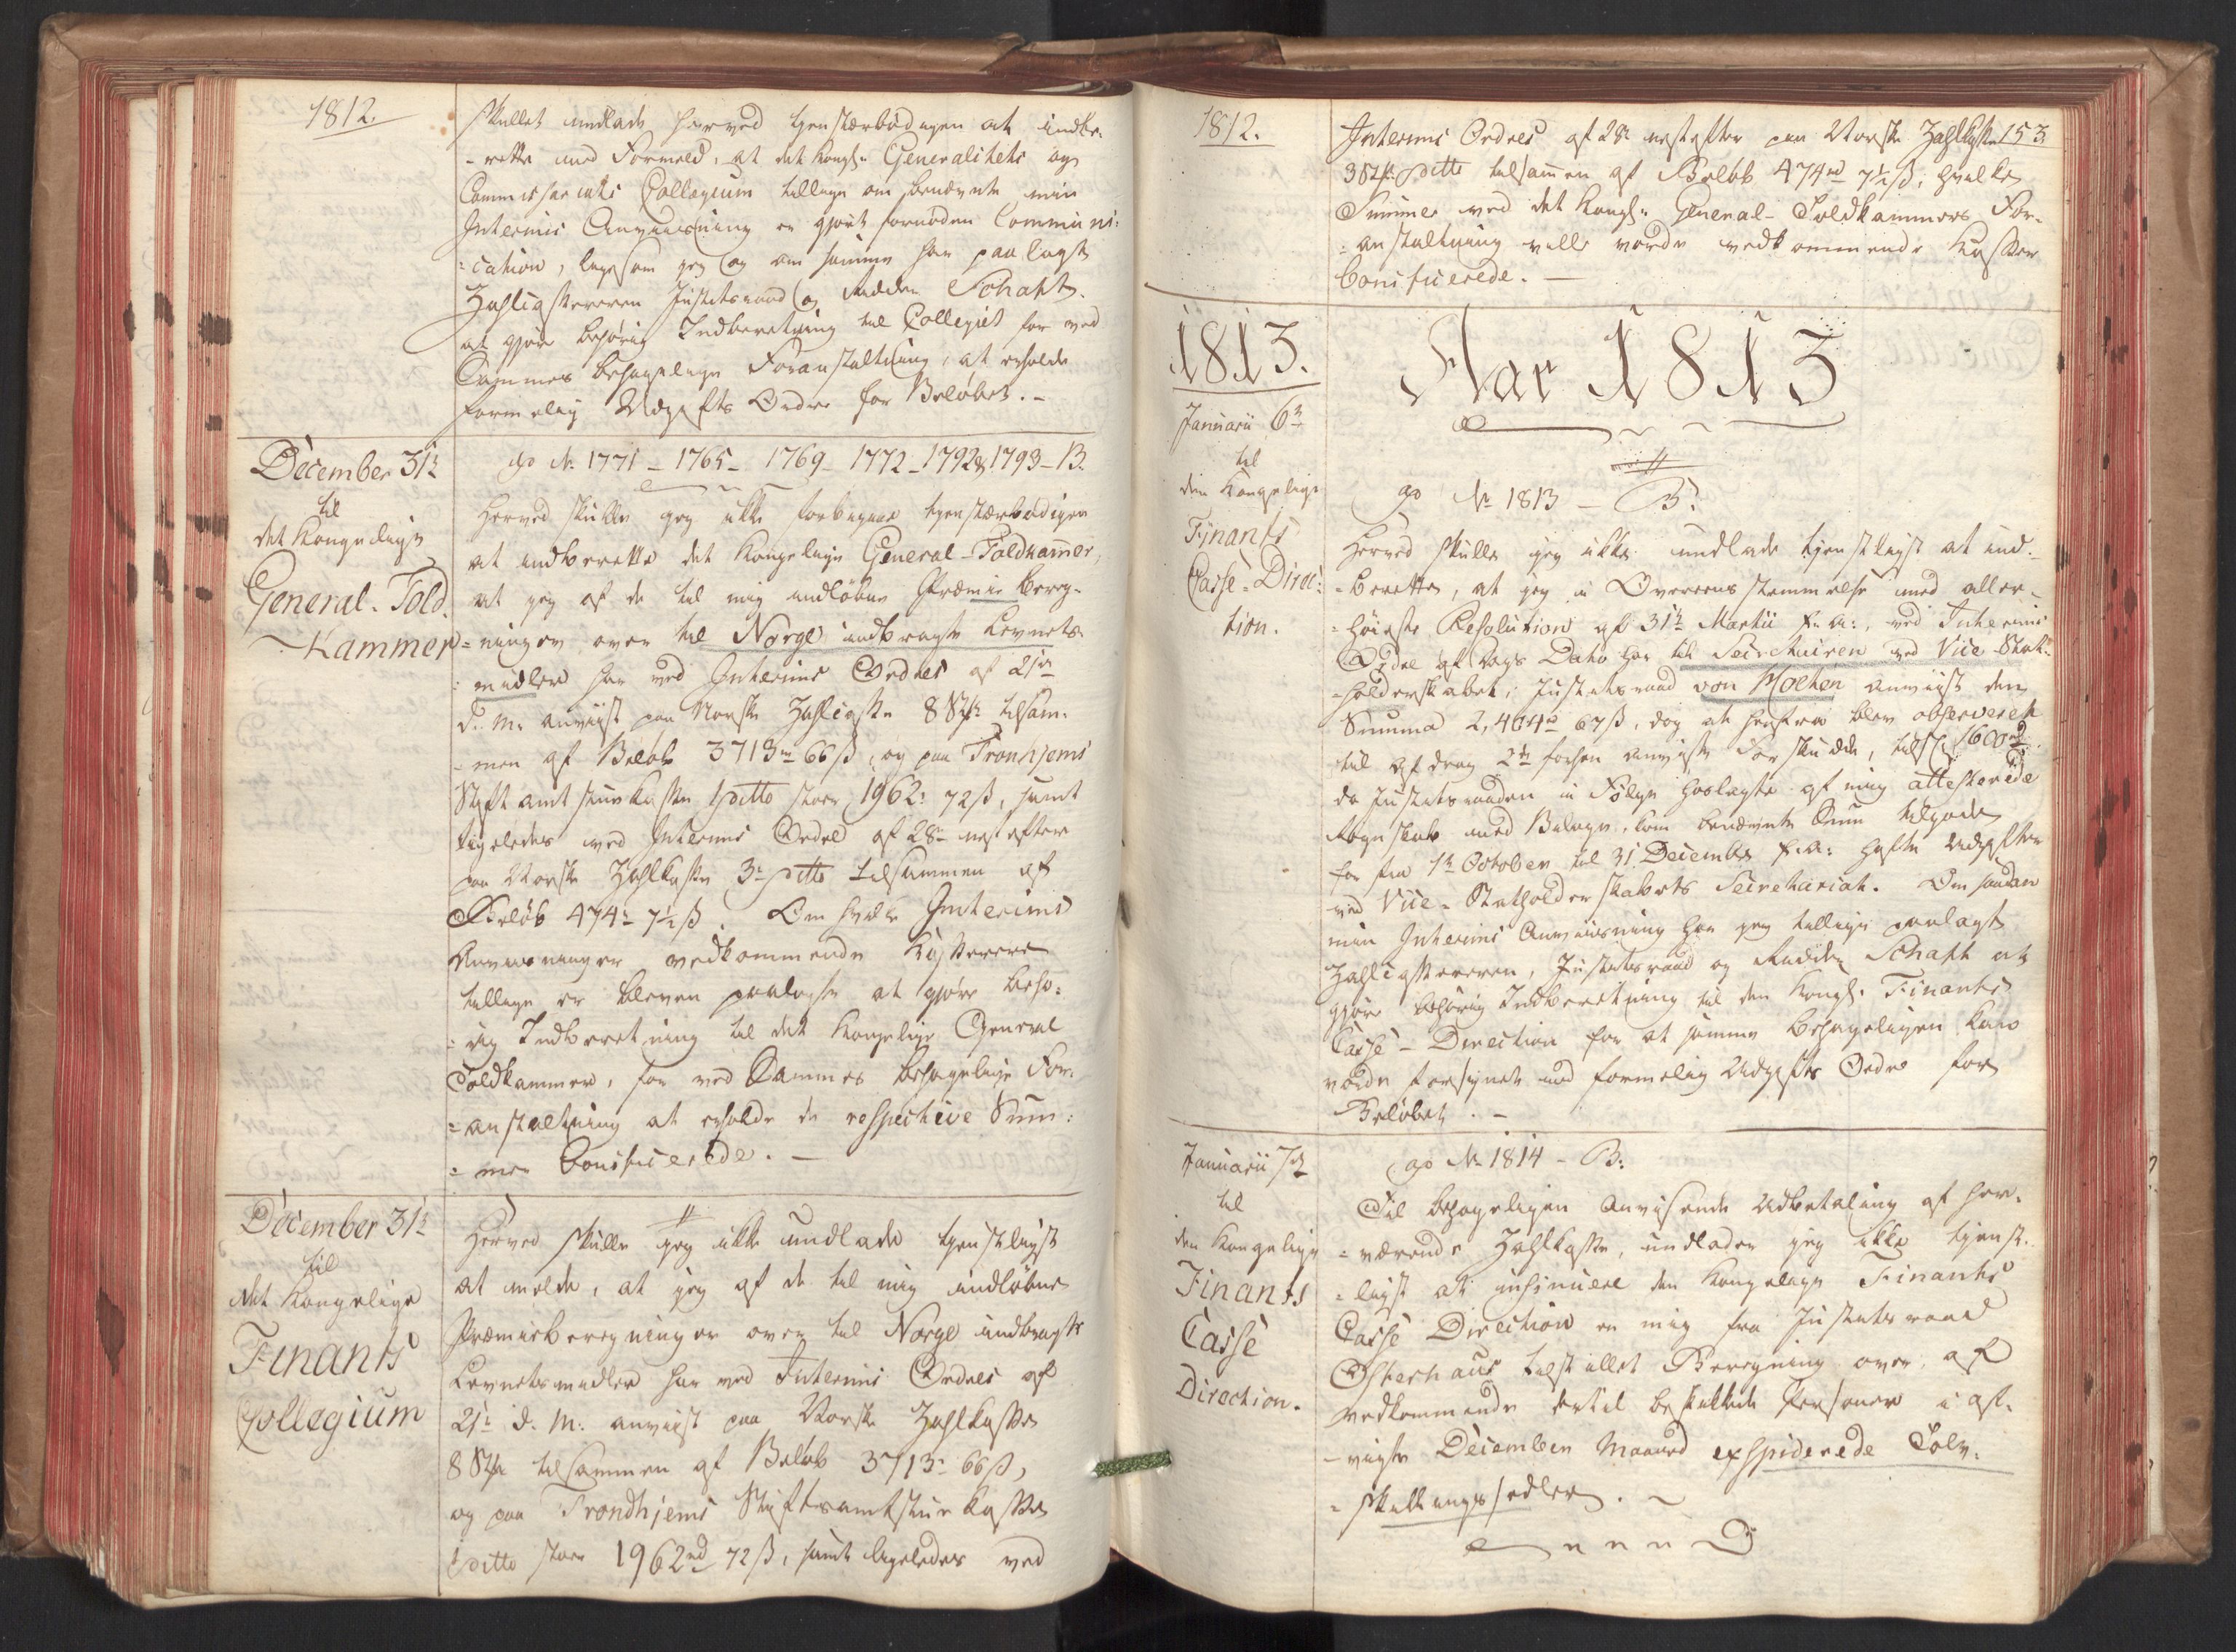 1812.
skullet undlade herved tjenstærbødigen at indbe-
-rette med Formeld, at det Kongl. Generalitets og
Commissariats Collegium tillige om benævnte min
Interims Anviisning er gjort fornøden Communi-
-cation, ligesom jeg og om samme har paalagt
Zahlcasserer Justitsraad og Ridder Schaft
at gjøre behørig Indberetning til Collegiet for ved
Sammes behagelige Foranstaltning, at erholde
formelig Udgifts Ordre for Beløbet. -
December 31te
til
det Kongelige
General-Told
-Kammer
ap No 1771 - 1765 - 1769 - 1772 - 1792 & 1793 - B.
Herved skulle jeg ikke forbigaae tjenstærbødigen
at indberette det Kongelige General-Toldkammer,
at jeg af de til mig indløbne Præmie bereg-
-ninger over til Norge indbragte Levnets-
-midler har ved Interims Ordres af 21de
d. M. anviist paa Norske Zahlcasse 8 Stk tilsam-
-men af Beløb 3713 rd 66 ß, og paa Tronhjems
Stiftamtstuekasse 1 ditto stor 1962: 72 ß, samt
ligeledes ved Interims Ordre af 28de nestefter
paa Norske Zahlkasse 3de ditto tilsammen af
Beløb 474: 7½ ß. Om hvilke Interims
Anviisninger vedkommende Kasserere
tillige er bleven paalagt at gjøre behø-
-rig Indberetning til det Kongelige General
Toldkammer, for ved Sammes behagelige For-
-anstaltning at erholde de respective Sum-
-mer bonificerede. -
December 31te
til
det Kongelige
Finants
Collegium
Herved skulle jeg ikke undlade tjenstligst
at melde, at jeg af de til mig indløbne
Præmieberegninger over til Norge indbragte
Levnetsmidler har ved Interims Ordres af
21de d. M. anviist paa Norske Zahlkasse
8 Stk tilsammen af Beløb 3713: 66 ß,
og paa Trondhjems Stiftsamtstue Kasse
1 ditto stor 1962 rd 72 ß, samt ligeledes ved
1812.
153
Interims Ordres af 28de nestefter paa Norske Zahlkasse
3 Stk ditto tilsammen af Beløb 474 rd 7½ ß; hvilke
Summer ved det Kongl. General-Toldkammers For-
-anstaltning ville vorde vedkommende Kasser
bonificerede. -
1813.
Aar 1813
Januarii 6te
til
den Kongelige
Finants
Casse-Direc-
tion.
ap No 1813 - B:
Herved skulle jeg ikke undlade tjenstligst at ind-
-berette, at jeg i Overeensstemmelse med aller-
-høieste Resolution af 31te Martii f. A., ved Interims
Ordre af Dags Dato har til Secretairen ved Vice-Stat-
-holderskabet, Justitsraad von Holten anviist den
Summa 2,404 rd 67 ß, dog at herfra blev observeret
til Afdrag 2de forhen anviiste Forskudde, tils. 1600 rd.
da Justitsraaden i Følge hoslagte af mig attesterede
Regnskab med Bilage, kom benævnte Sum tilgode
for fra 1te October til 31 Decembr f. A. hafte Udgifter
ved Vice-Statholderskabets Secretariat. Om saadan
min Interims Anviisning har jeg tillige paalagt
Zahlcassereren, Justitsraad og Ridder Schaft at
gjøre behørig Indberetning til den Kongl. Finants
Casse-Direction for at samme behageligen kan
vorde forsynet med formelig Udgifts Ordre for
Beløbet. -
Januarii 7de
til
den Kongelige
Finants
Casse
Direction.
ap No 1814 - B:
Til behageligen anvisende Udbetaling af her-
-værende Zahlkasse, undlader jeg ikke tjenst-
-ligst at insinuere den Kongelige Finants
Casse Direction en mig fra Justitsraad
tilstillet Beregning over, af
vedkommende dertil beskikkede Personer i af-
-vigte December Maaned expiderede Tolv-
-skillingssedler. -